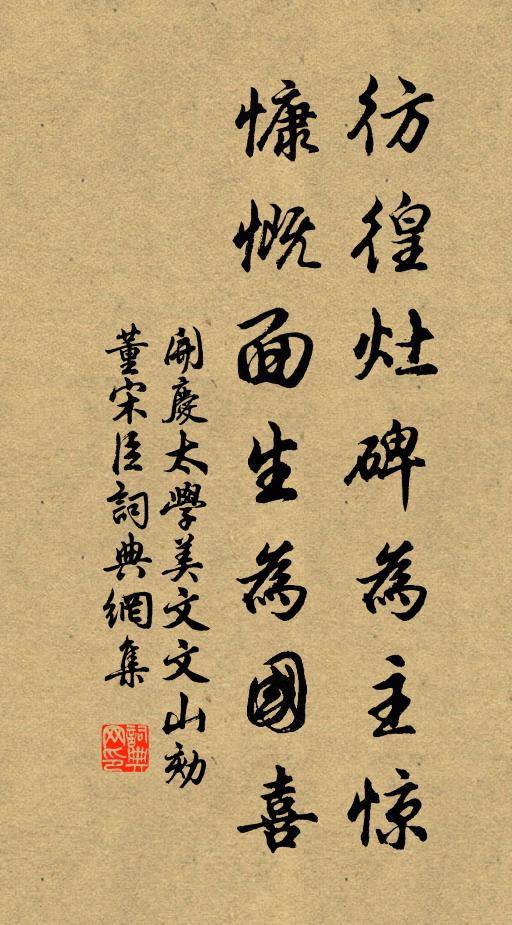 彷徨灶碑為主惊
慷慨面生為國喜
開慶太學美文文山劾
董宋臣詞典網集
詞典网印